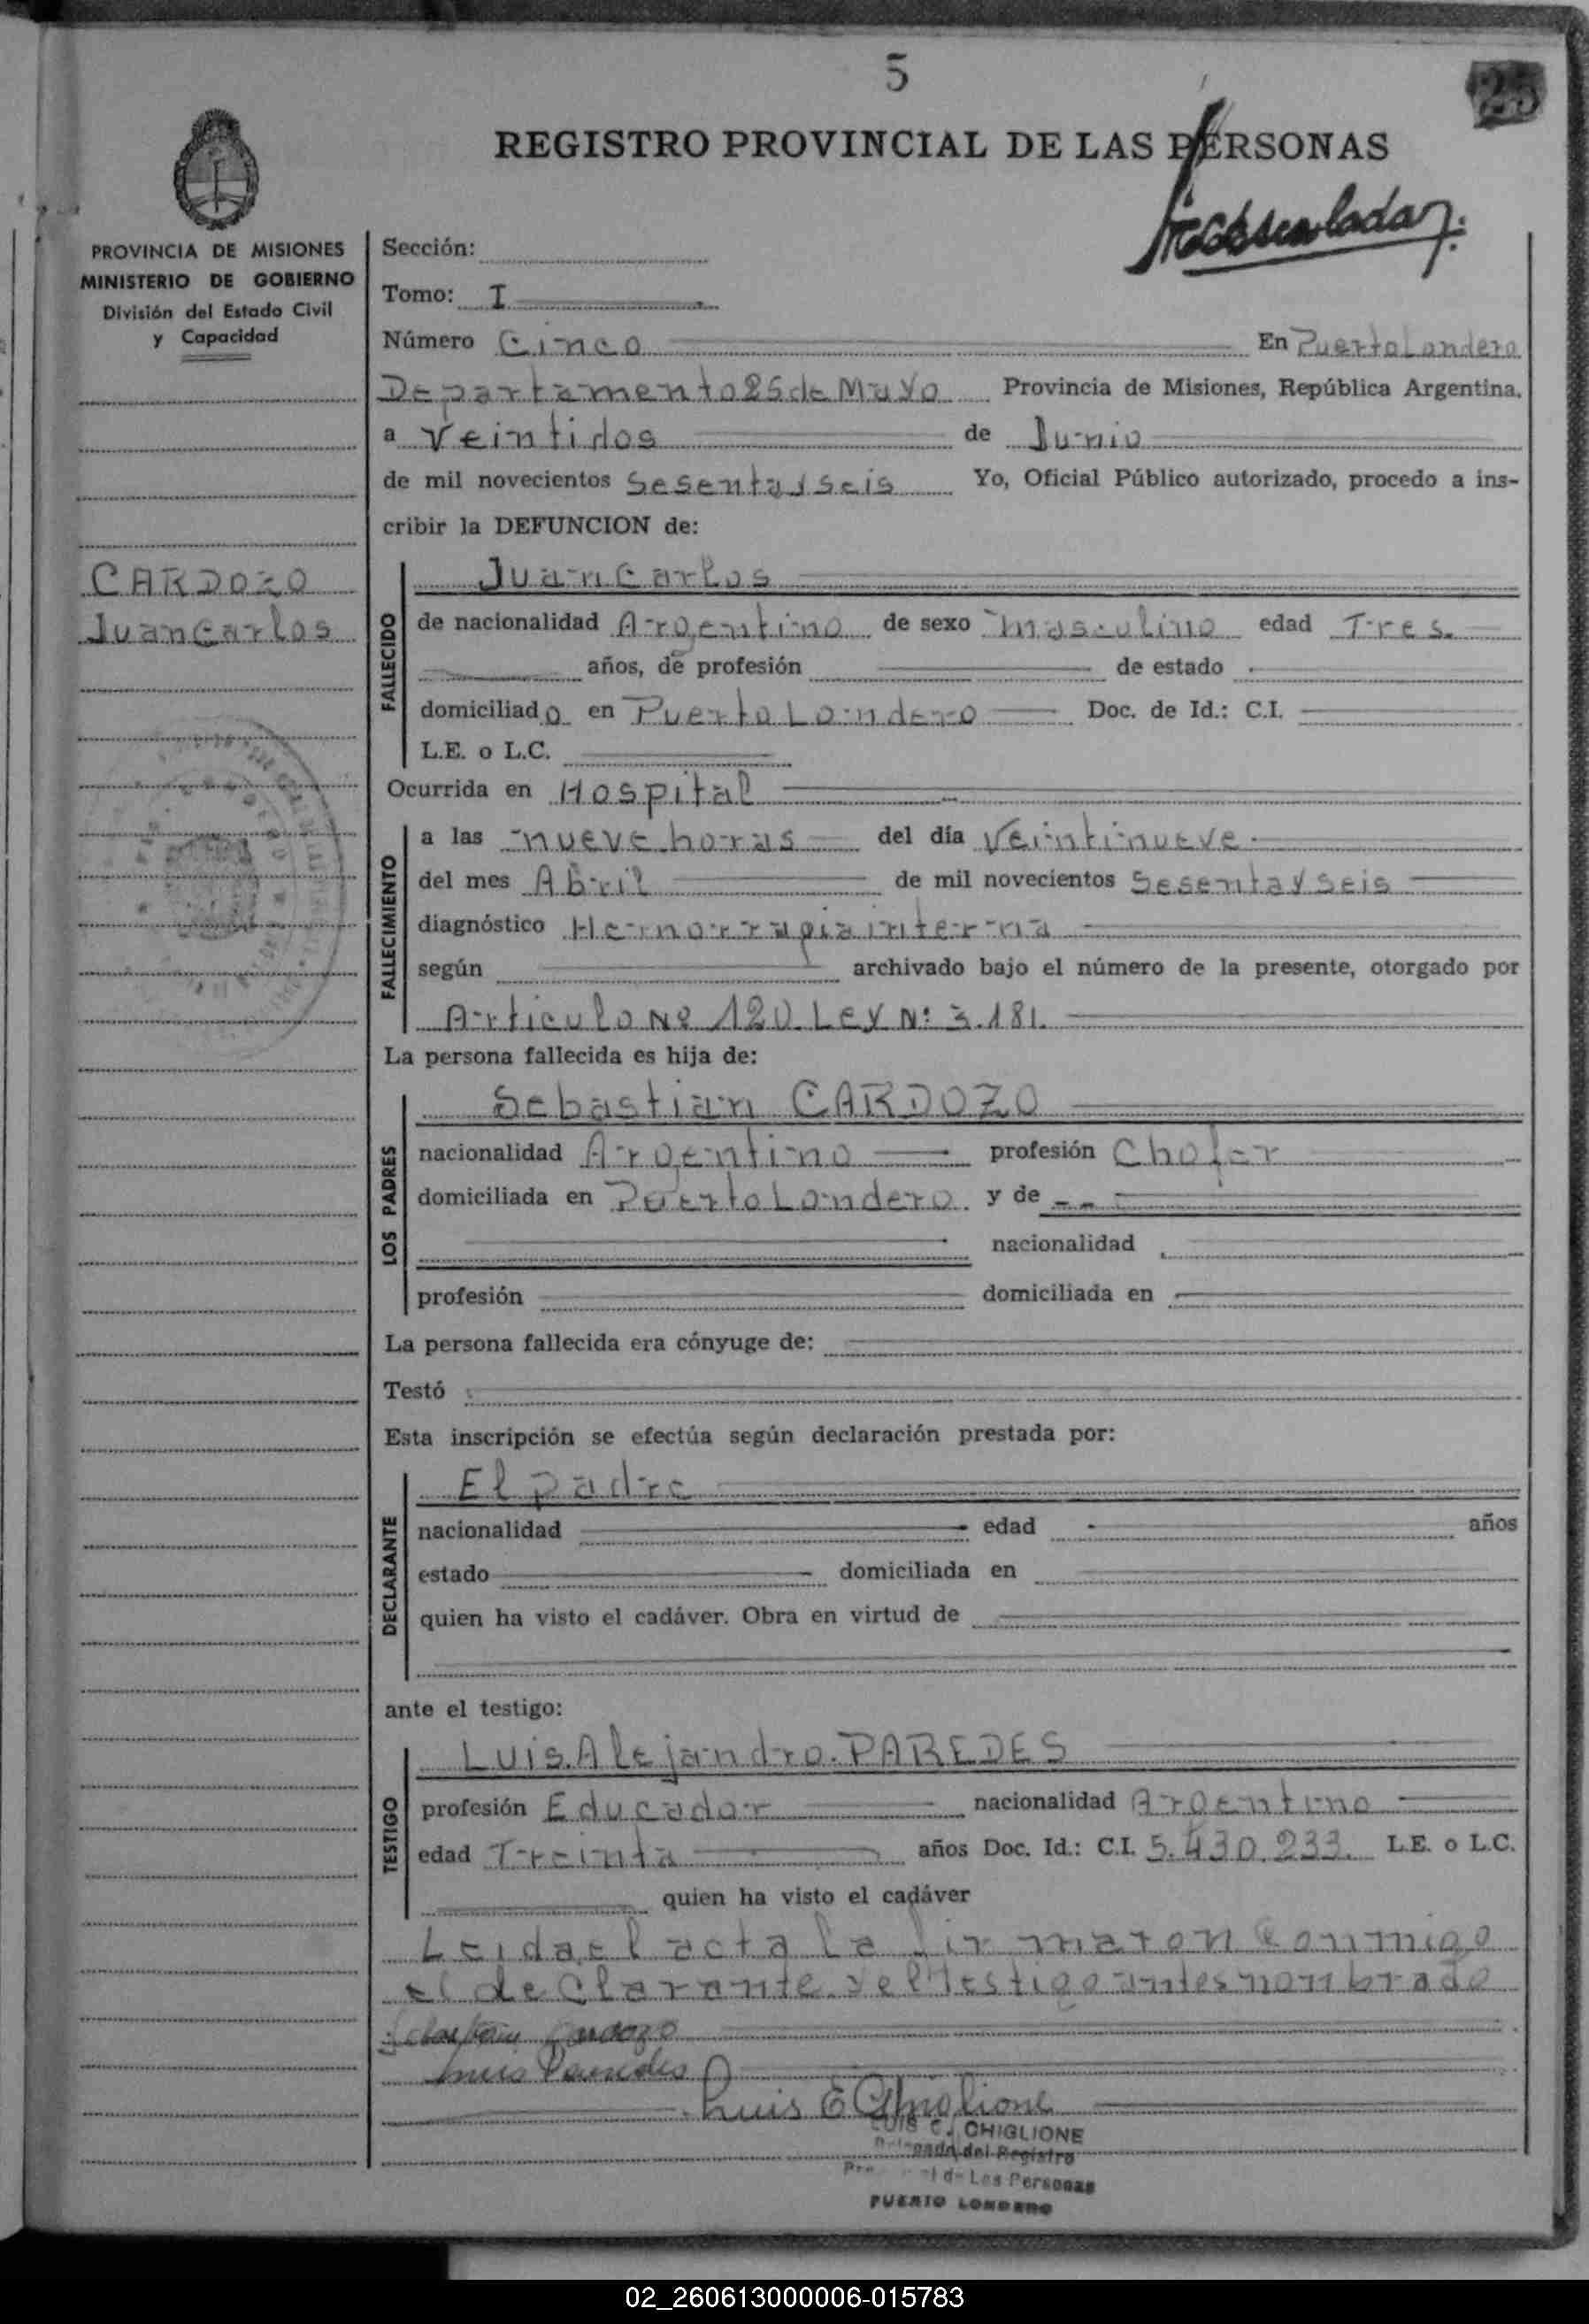 5
25
REGISTRO PROVINCIAL DE LAS PERSONAS
PROVINCIA DE MISIONES
MINISTERIO DE GOBIERNO
División del Estado Civil
y Capacidad
CARDOZO
Juan Carlos
Sección:
Tomo: I
Número Cinco En Puerto Londero
Departamento 25 de Mayo Provincia de Misiones, República Argentina,
a Veintidos de Junio
de mil novecientos Sesenta y Seis Yo, Oficial Público autorizado, procedo a ins-
cribir la DEFUNCION de:
FALLECIDO
Juan Carlos
de nacionalidad Argentino de sexo masculino edad Tres
años, de profesión de estado
domiciliado en Puerto Londero Doc. de Id.: C.I.
L.E. o L.C.
Ocurrida en Hospital
FALLECIMIENTO
a las nueve horas del día Veintinueve
del mes Abril de mil novecientos Sesenta y Seis
diagnóstico Hemorragia interna
según archivado bajo el número de la presente, otorgado por
Articulo Nº 120 Ley Nº 3.181.
La persona fallecida es hija de:
LOS PADRES
Sebastian CARDOZO
nacionalidad Argentino profesión Chofer
domiciliada en Puerto Londero y de
nacionalidad
profesión domiciliada en
La persona fallecida era cónyuge de:
Testó
Esta inscripción se efectúa según declaración prestada por:
DECLARANTE
El padre
nacionalidad edad años
estado domiciliada en
quien ha visto el cadáver. Obra en virtud de
ante el testigo:
TESTIGO
Luis Alejandro PAREDES
profesión Educador nacionalidad Argentino
edad Treinta años Doc. Id.: C.I. 5.430.233. L.E. o L.C.
quien ha visto el cadáver
Leida el acta la firmaron conmigo
el declarante y el testigo antes nombrado
Sebastian Cardozo
Luis Paredes
Luis E Ghiglione
LUIS E. GHIGLIONE
del Registro
de Las Personas
PUERTO LONDERO
02_260613000006-015783